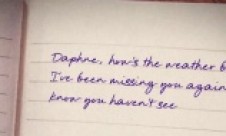 Daphne, how's the weather
I've been missing you again
know you haven't see